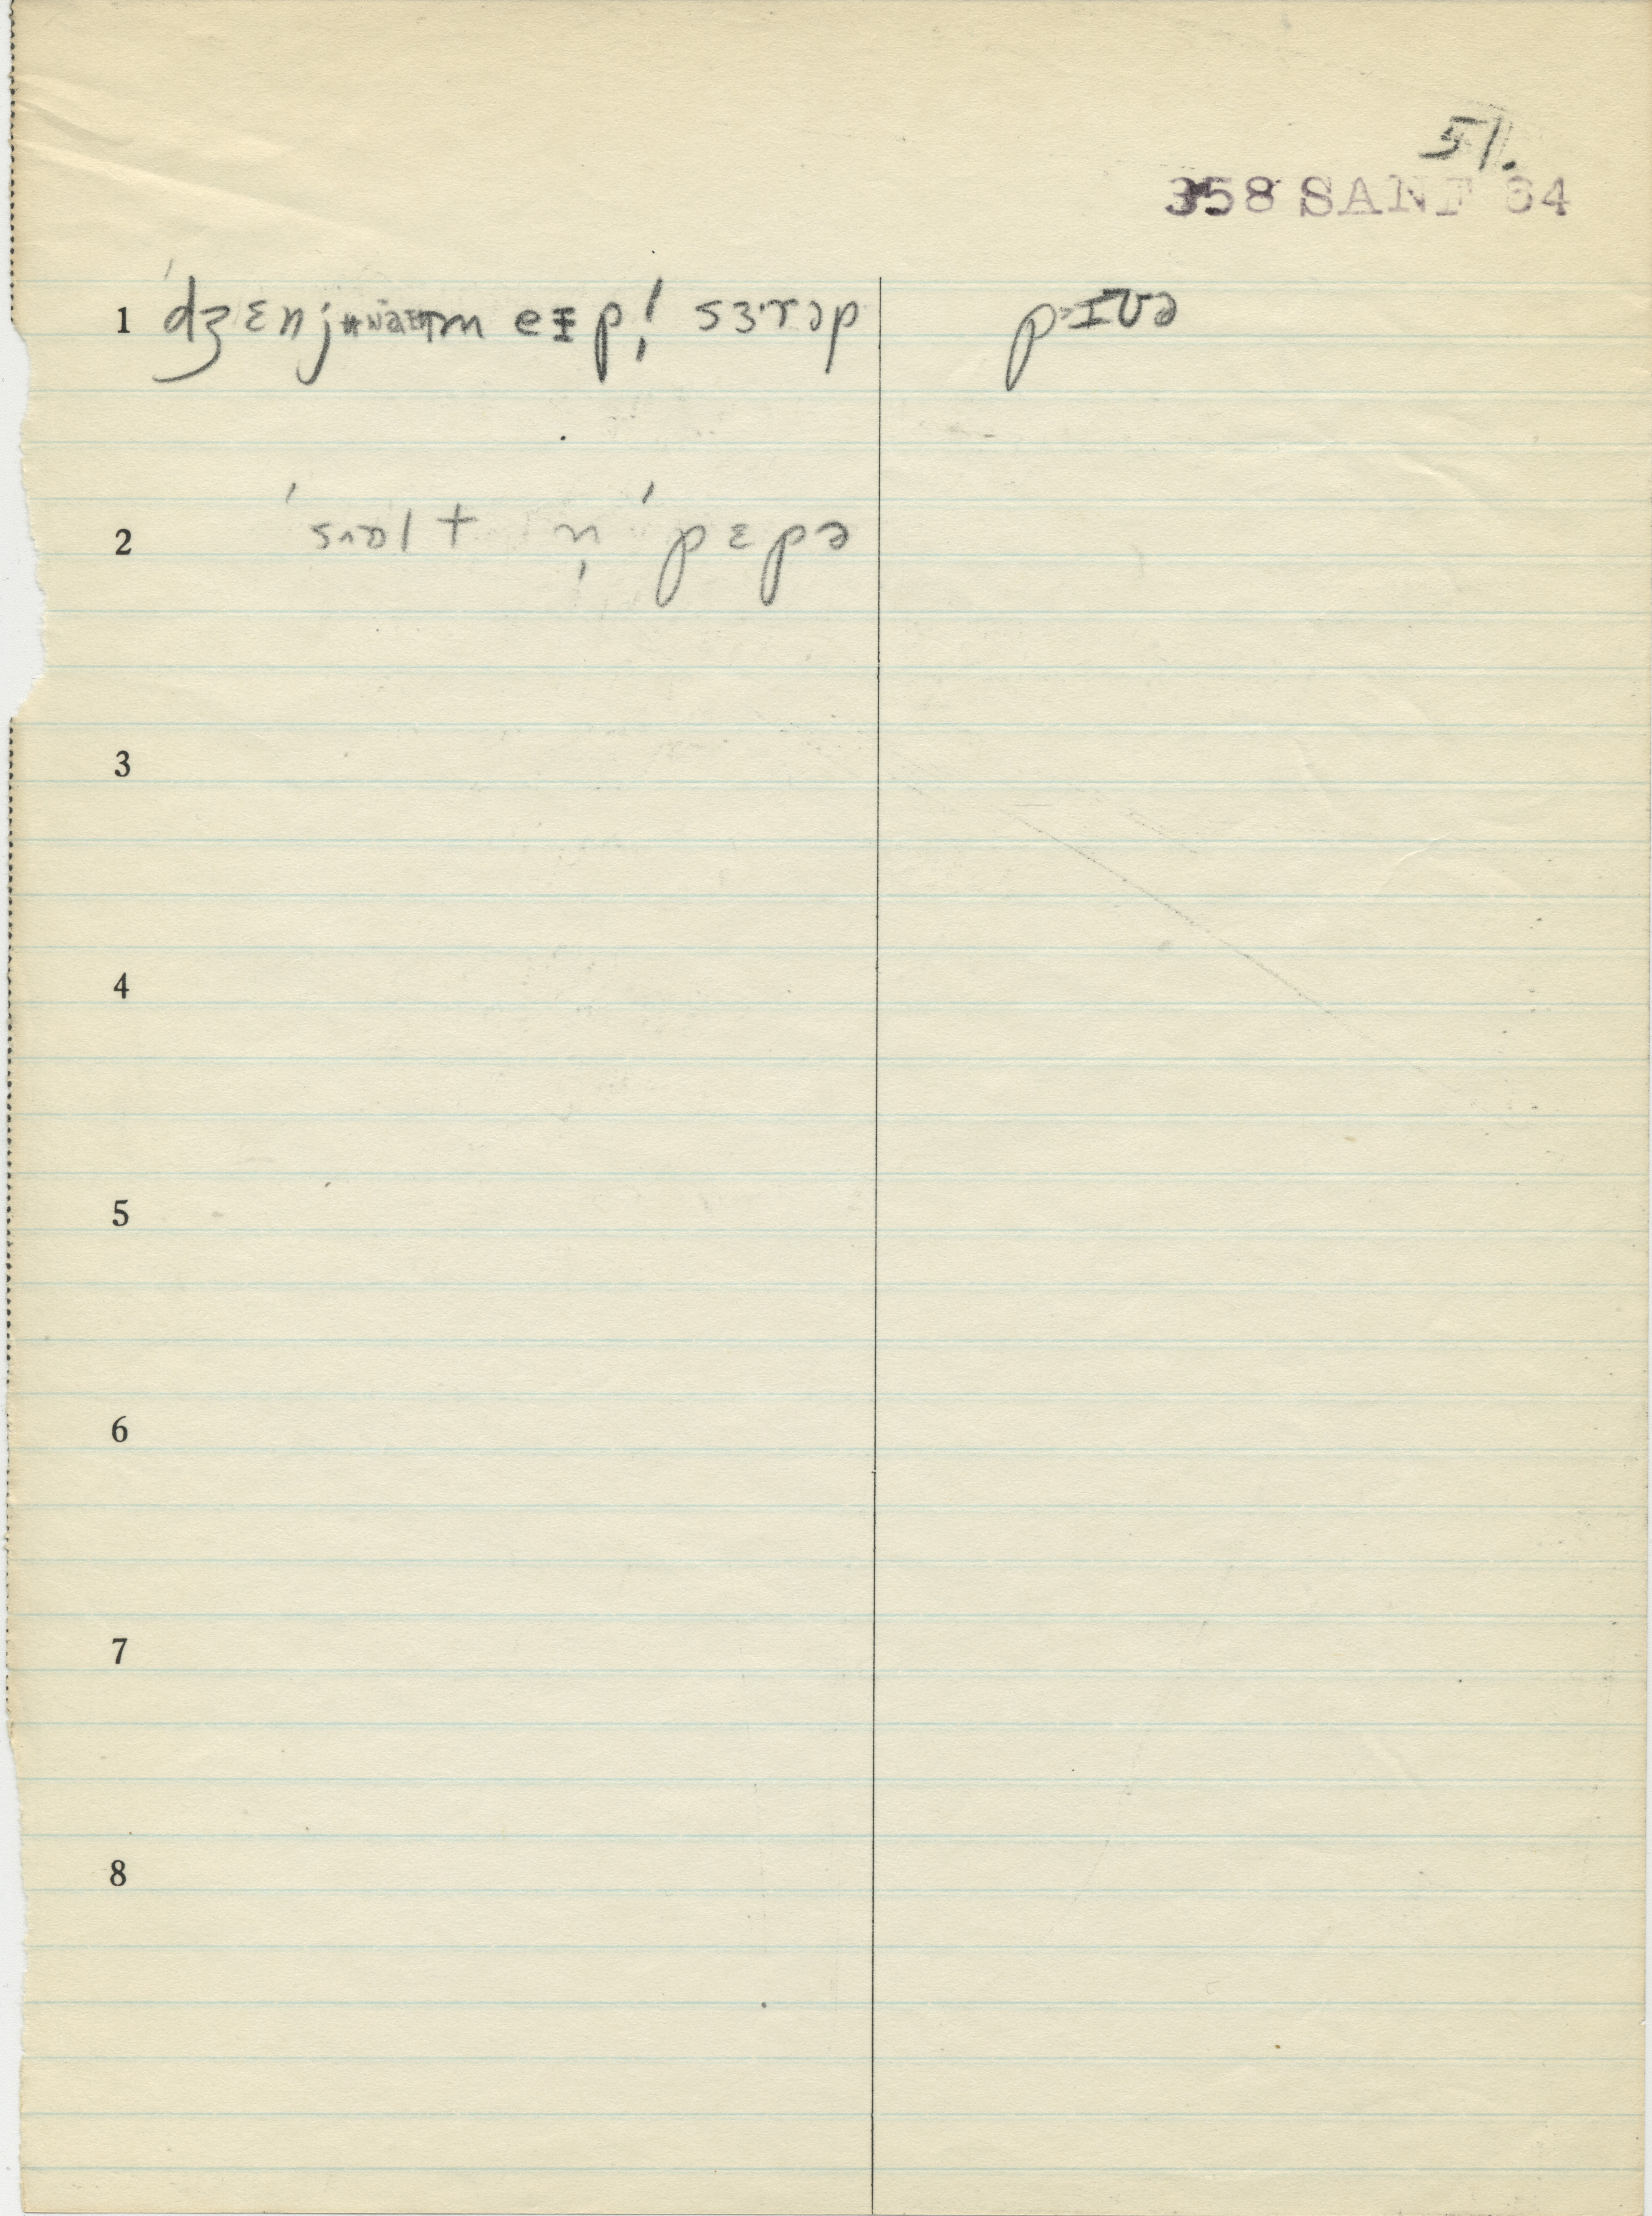 51.
358 SANF 64
1 ˈdʒɛnjuwən meɪpl̩ sɜ·rəp pɪʊə
2 ˈsɒlt n̩ ˈpɛpə
3
4
5
6
7
8